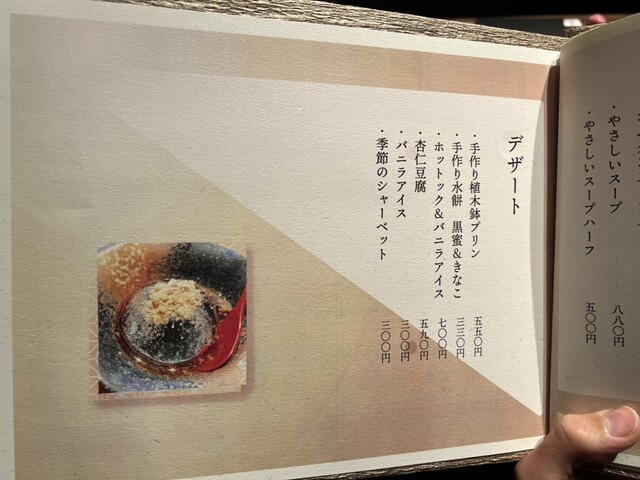 ・やさしいスープ 八八〇円
・やさしいスープハーフ 五〇〇円
デザート
・手作り植木鉢プリン 五五〇円
・手作り水餅 黒蜜&きなこ 三三〇円
・ホットック&バニラアイス 七〇〇円
・杏仁豆腐 五九〇円
・バニラアイス 三〇〇円
・季節のシャーベット 三〇〇円